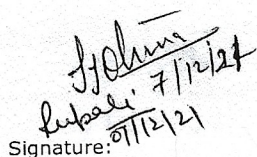 7/12/21
Rupali
07/12/21
Signature: